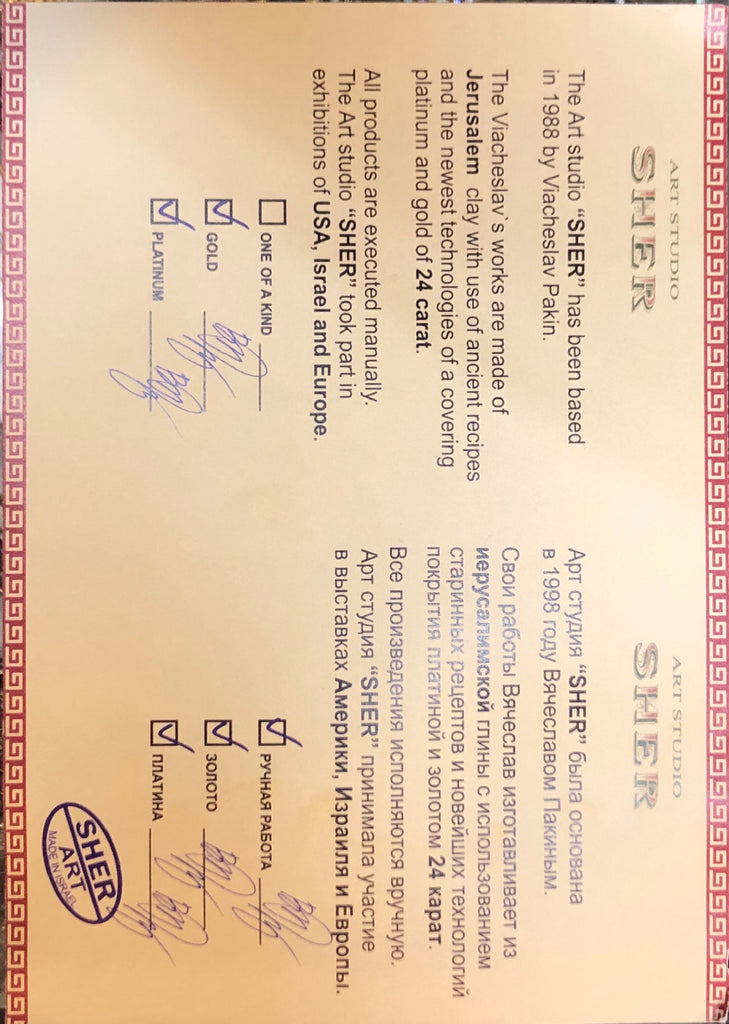 ART STUDIO
SHER
The Art studio “SHER” has been based
in 1988 by Viacheslav Pakin.
The Viacheslav`s works are made of
Jerusalem clay with use of ancient recipes
and the newest technologies of a covering
platinum and gold of 24 carat.
All products are executed manually.
The Art studio “SHER” took part in
exhibitions of USA, Israel and Europe.
ONE OF A KIND
GOLD
PLATINUM
ART STUDIO
SHER
Арт студия “SHER” была основана
в 1998 году Вячеславом Пакиным.
Свои работы Вячеслав изготавливает из
иерусалимской глины с использованием
старинных рецептов и новейших технологий
покрытия платиной и золотом 24 карат.
Все произведения исполняются вручную.
Арт студия “SHER” принимала участие
в выставках Америки, Израиля и Европы.
РУЧНАЯ РАБОТА
ЗОЛОТО
ПЛАТИНА
SHER
ART
MADE IN ISRAEL